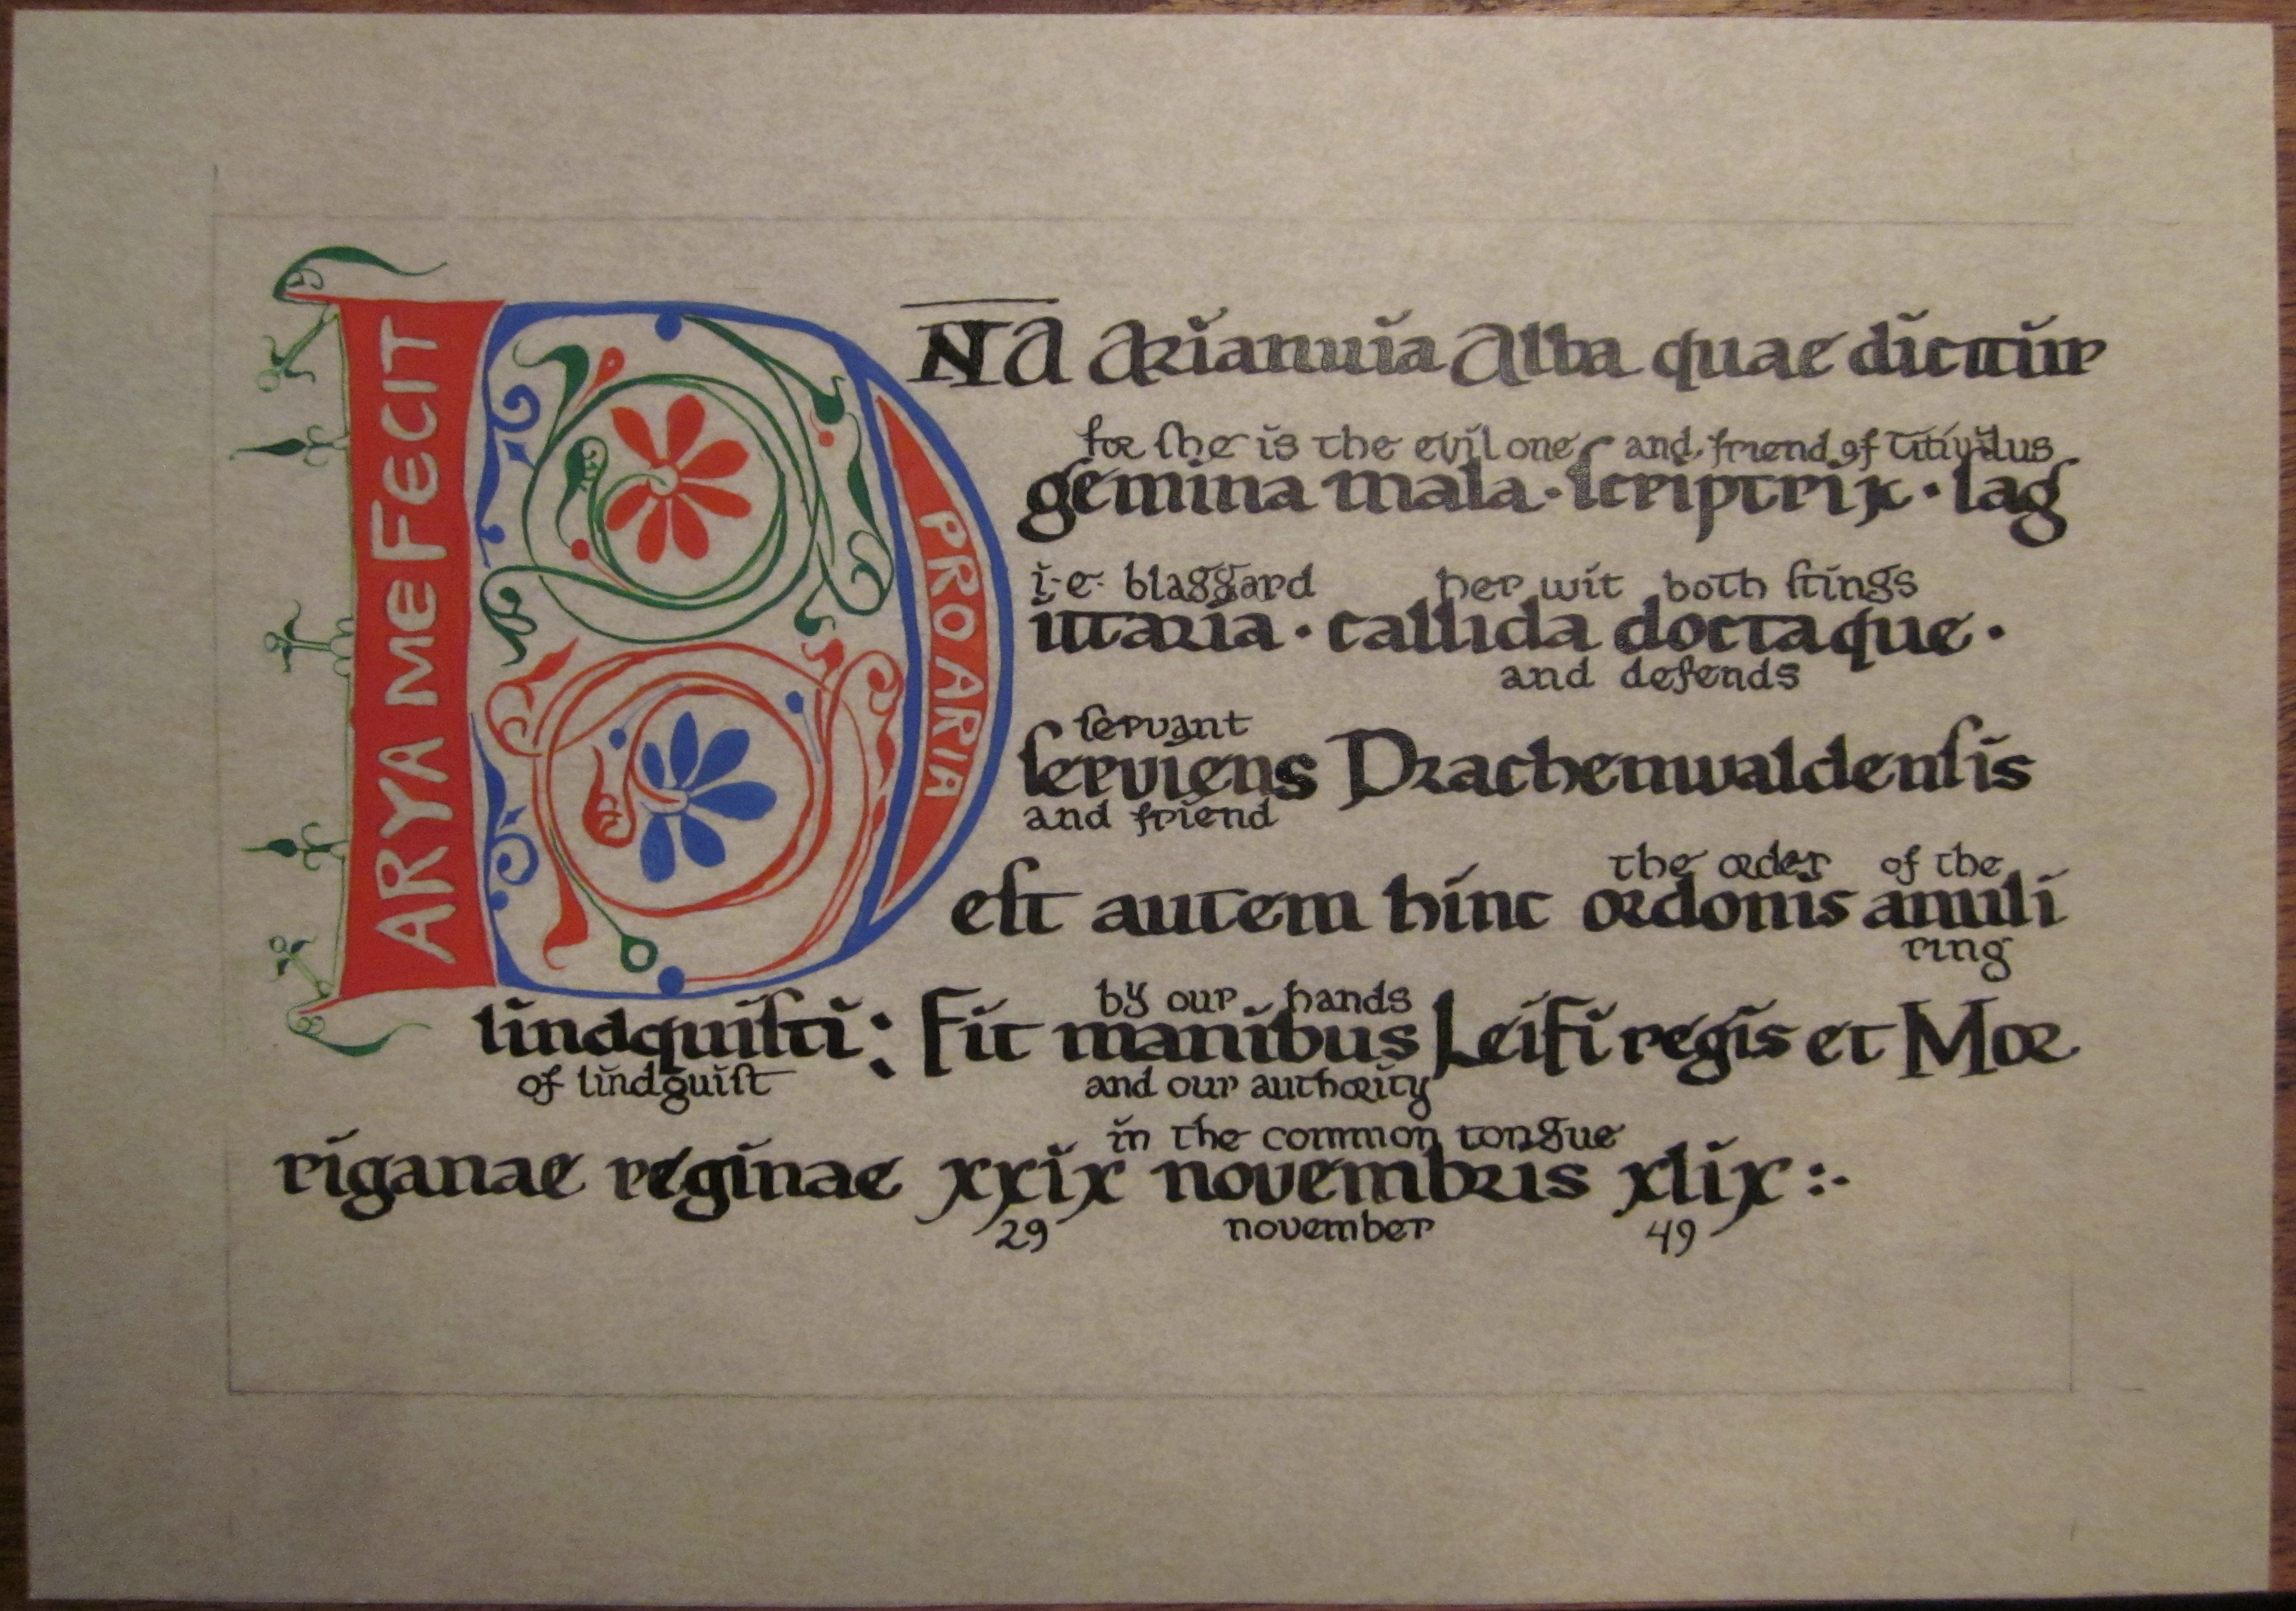 ARYA ME FECIT
PRO ARIA
DNA Arianwia Alba quae dicitur
for she is the evil one and friend of Titivilus
gemina mala · scriptrix · lag
i·e· blaggard her wit both stings
utaria · callida doctaque ·
and defends
servant
serviens Drachenwaldensis
and friend
the order of the
est autem hinc ordonis anuli
ring
by our hands
lindquisti : Fit manibus Leifi regis et Mor
of lindquist and our authority
in the common tongue
riganae reginae xxix novembris xlix :·
29 november 49